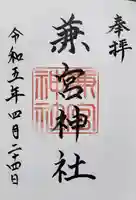 奉拝
兼宮神社
令和五年四月二十四日